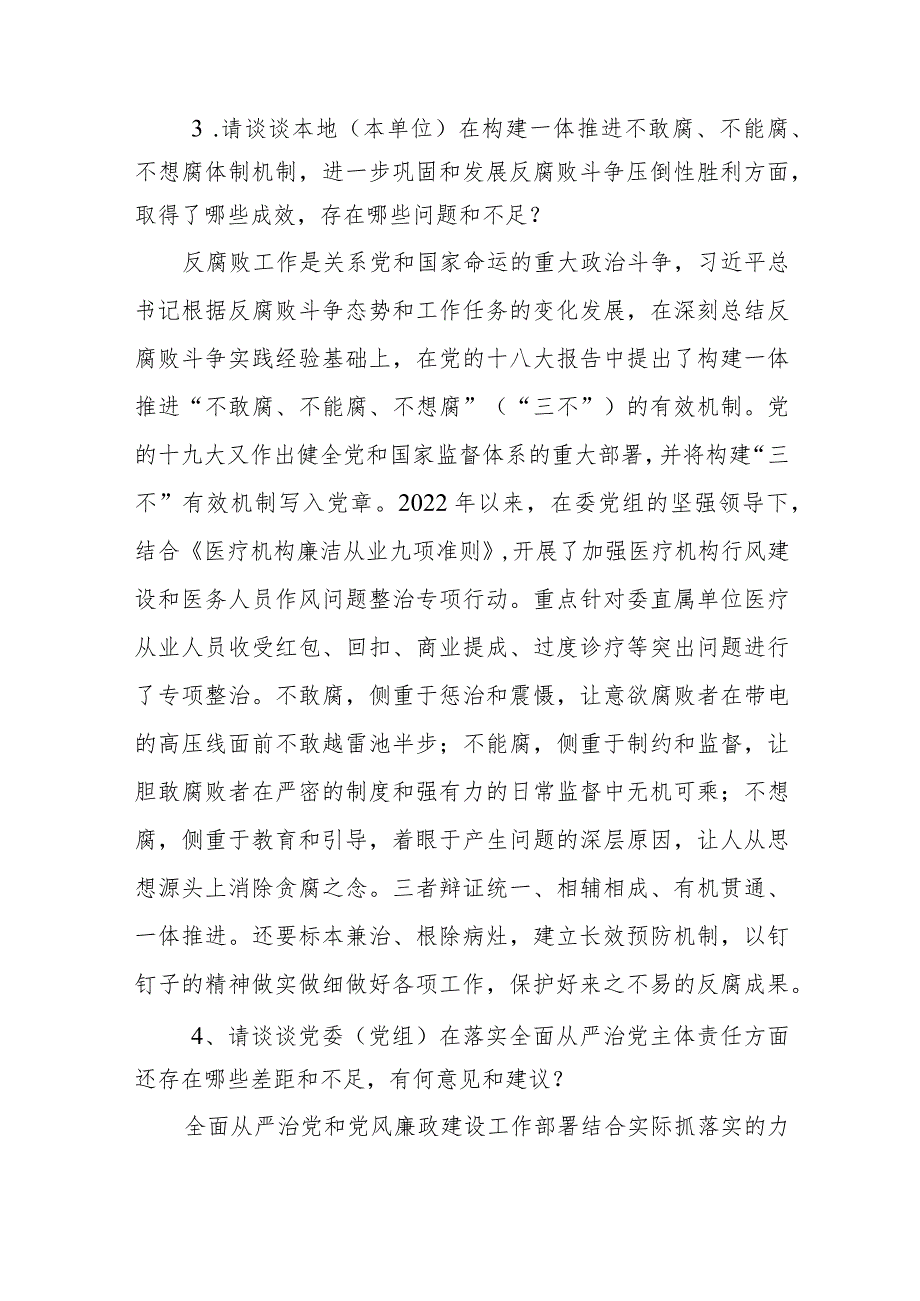 3 .请谈谈本地（本单位）在构建一体推进不敢腐、不能腐、
不想腐体制机制，进一步巩固和发展反腐败斗争压倒性胜利方面，
取得了哪些成效，存在哪些问题和不足？
反腐败工作是关系党和国家命运的重大政治斗争，习近平总
书记根据反腐败斗争态势和工作任务的变化发展，在深刻总结反
腐败斗争实践经验基础上，在党的十八大报告中提出了构建一体
推进“不敢腐、不能腐、不想腐”（“三不”）的有效机制。党
的十九大又作出健全党和国家监督体系的重大部署，并将构建“三
不”有效机制写入党章。2022 年以来，在委党组的坚强领导下，
结合《医疗机构廉洁从业九项准则》,开展了加强医疗机构行风建
设和医务人员作风问题整治专项行动。重点针对委直属单位医疗
从业人员收受红包、回扣、商业提成、过度诊疗等突出问题进行
了专项整治。不敢腐，侧重于惩治和震慑，让意欲腐败者在带电
的高压线面前不敢越雷池半步；不能腐，侧重于制约和监督，让
胆敢腐败者在严密的制度和强有力的日常监督中无机可乘；不想
腐，侧重于教育和引导，着眼于产生问题的深层原因，让人从思
想源头上消除贪腐之念。三者辩证统一、相辅相成、有机贯通、
一体推进。还要标本兼治、根除病灶，建立长效预防机制，以钉
钉子的精神做实做细做好各项工作，保护好来之不易的反腐成果。
4、请谈谈党委（党组）在落实全面从严治党主体责任方面
还存在哪些差距和不足，有何意见和建议？
全面从严治党和党风廉政建设工作部署结合实际抓落实的力